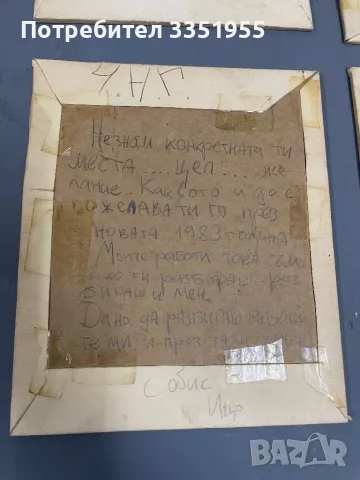 Потребител 3351955
Ч.Н.Г.
Незнам конкретната ти
мечта..... цел..... же
лание. Каквото и да е
пожелавам ти го през
новата 1983 година
Моите работи това съм
ти разбираш
бираш и мен.
Дано да разбираш
те ми и през
Собис
BAZAR